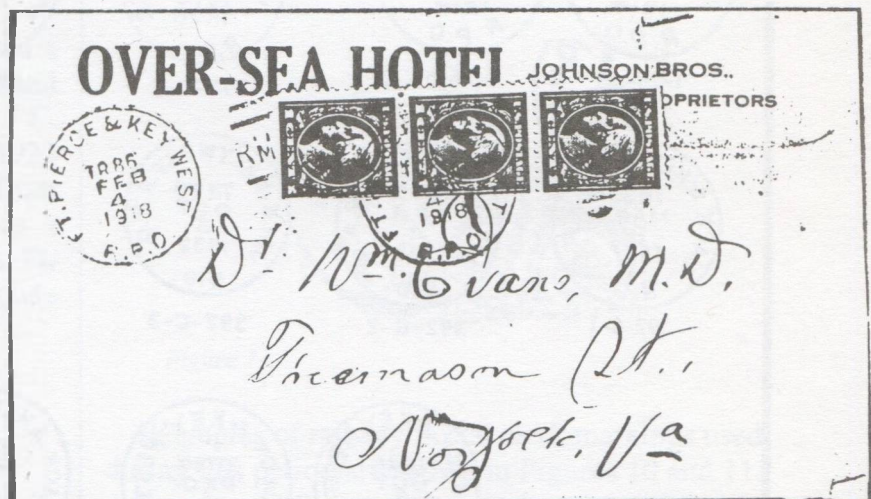 OVER-SEA HOTEL
JOHNSON BROS..
OPRIETORS
FT. PIERCE & KEY WEST
TR 85
FEB
4
1918
R.P.O
RM
4
1918
R.P.O
Dr Wm. Evans, M.D.
Freemason St.,
Norfolk, Va